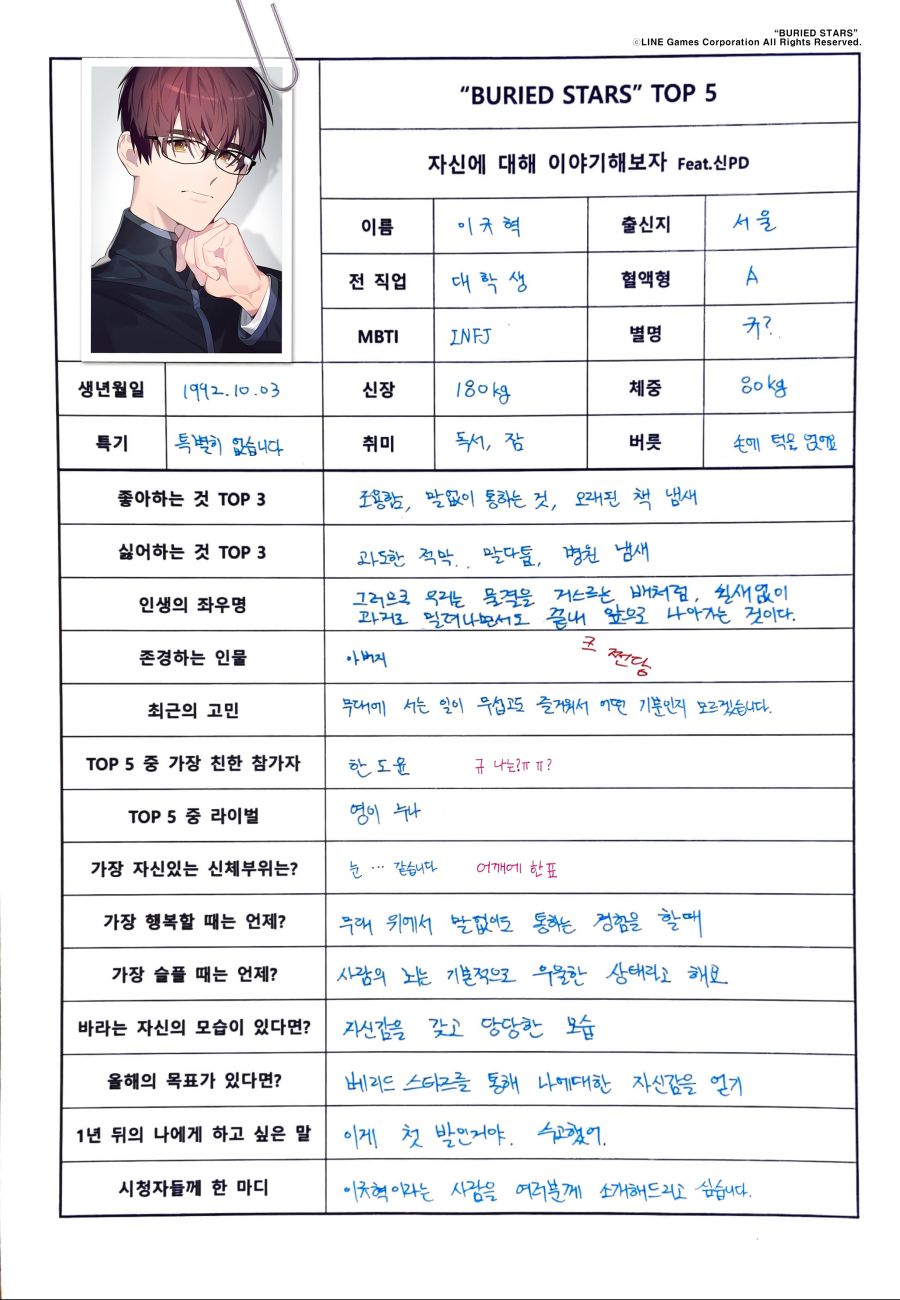 "BURIED STARS"
ⓒLINE Games Corporation All Rights Reserved.
"BURIED STARS" TOP 5
자신에 대해 이야기해보자 Feat.신PD
이름 이규혁 출신지 서울
전 직업 대학생 혈액형 A
MBTI INFJ 별명 규?..
생년월일 1992.10.03 신장 180kg 체중 80kg
특기 특별히 없습니다 취미 독서, 잠 버릇 손에 턱을 얹어요
좋아하는 것 TOP 3 조용함, 말없이 통하는 것, 오래된 책 냄새
싫어하는 것 TOP 3 과도한 적막.. 말다툼, 병원 냄새
인생의 좌우명 그러므로 우리는 물결을 거스르는 배처럼, 쉴새없이
과거로 밀려나면서도 끝내 앞으로 나아가는 것이다.
존경하는 인물 아버지 크 쩐당
최근의 고민 무대에 서는 일이 무섭고도 즐거워서 어떤 기분인지 모르겠습니다.
TOP 5 중 가장 친한 참가자 한도윤 규 나는?ㅠㅠ?
TOP 5 중 라이벌 영이 누나
가장 자신있는 신체부위는? 눈 … 같습니다 어깨에 한표
가장 행복할 때는 언제? 무대 위에서 말없이도 통하는 경험을 할때
가장 슬플 때는 언제? 사람의 뇌는 기본적으로 우울한 상태라고 해요
바라는 자신의 모습이 있다면? 자신감을 갖고 당당한 모습
올해의 목표가 있다면? 베리드 스타즈를 통해 나에대한 자신감을 얻기
1년 뒤의 나에게 하고 싶은 말 이게 첫 발인거야. 수고했어.
시청자들께 한 마디 이규혁이라는 사람을 여러분께 소개해드리고 싶습니다.